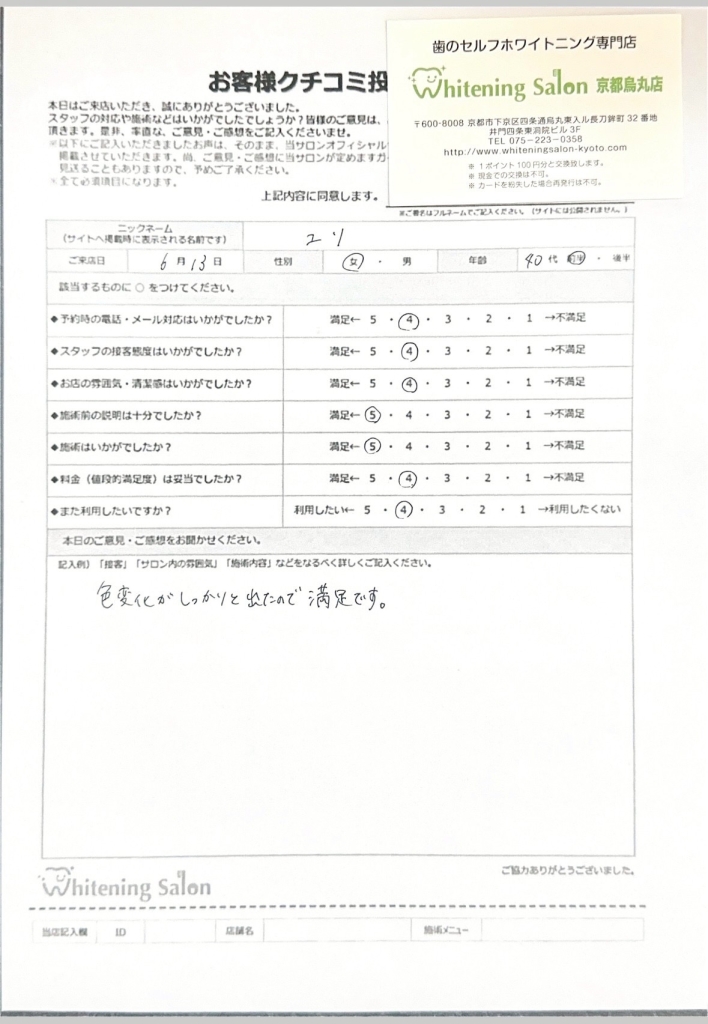 歯のセルフホワイトニング専門店
Whitening Salon 京都烏丸店
〒600-8008 京都市下京区四条通烏丸東入ル長刀鉾町 32 番地
井門四条東洞院ビル 3F
TEL 075-223-0358
http://www.whiteningsalon-kyoto.com
※ 1ポイント 100円分と交換致します。
※ 現金での交換は不可。
※ カードを紛失した場合再発行は不可。
お客様クチコミ投
本日はご来店いただき、誠にありがとうございました。
スタッフの対応や施術などはいかがでしたでしょうか？皆様のご意見は、
頂きます。是非、率直な、ご意見・ご感想をご記入くださいませ。
※以下にご記入いただきましたお声は、そのまま、当サロンオフィシャル
掲載させていただきます。尚、ご意見・ご感想に当サロンが定めますガ
見送ることもありますので、予めご了承ください。
※全て必須項目になります。
上記内容に同意します。
※ご署名はフルネームでご記入ください。（サイトには公開されません。）
ニックネーム
（サイトへ掲載時に表示される名前です）
ご来店日 6 月 13 日 性別 女 ・ 男 年齢 40 代 前半 ・ 後半
該当するものに ○ をつけてください。
◆予約時の電話・メール対応はいかがでしたか？ 満足← 5 ・ 4 ・ 3 ・ 2 ・ 1 →不満足
◆スタッフの接客態度はいかがでしたか？ 満足← 5 ・ 4 ・ 3 ・ 2 ・ 1 →不満足
◆お店の雰囲気・清潔感はいかがでしたか？ 満足← 5 ・ 4 ・ 3 ・ 2 ・ 1 →不満足
◆施術前の説明は十分でしたか？ 満足← 5 ・ 4 ・ 3 ・ 2 ・ 1 →不満足
◆施術はいかがでしたか？ 満足← 5 ・ 4 ・ 3 ・ 2 ・ 1 →不満足
◆料金（値段的満足度）は妥当でしたか？ 満足← 5 ・ 4 ・ 3 ・ 2 ・ 1 →不満足
◆また利用したいですか？ 利用したい← 5 ・ 4 ・ 3 ・ 2 ・ 1 →利用したくない
本日のご意見・ご感想をお聞かせください。
記入例）「接客」「サロン内の雰囲気」「施術内容」などをなるべく詳しくご記入ください。
色変化がしっかりと出たので満足です。
ご協力ありがとうございました。
Whitening Salon
当店記入欄 ID 店舗名 施術メニュー